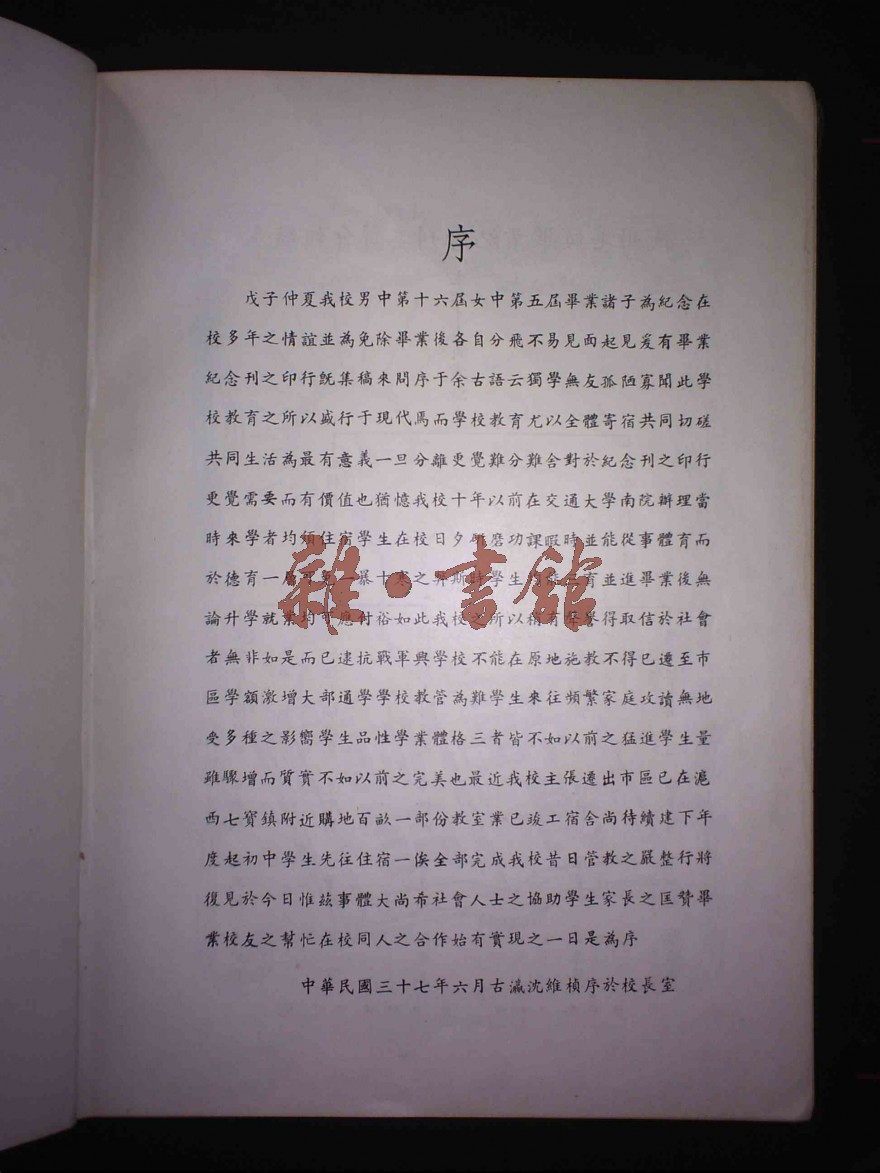 序
戊子仲夏我校男中第十六屆女中第五屆畢業諸子為紀念在
校多年之情誼並為免除畢業後各自分飛不易見面起見爰有畢業
紀念刊之印行既集稿來問序于余古語云獨學無友孤陋寡聞此學
校教育之所以盛行于現代焉而學校教育尤以全體寄宿共同切磋
共同生活為最有意義一旦分離更覺難分難舍對於紀念刊之印行
更覺需要而有價值也猶憶我校十年以前在交通大學南院辦理當
時來學者均須住宿學生在校日夕研磨功課暇時並能從事體育而
於德育一暴十寒之弊斯時學生有並進畢業後無
論升學就業均可應付裕如此我校之所以稍有聲譽得取信於社會
者無非如是而已逮抗戰軍興學校不能在原地施教不得已遷至市
區學額激增大部通學學校教管為難學生來往頻繁家庭攻讀無地
受多種之影嚮學生品性學業體格三者皆不如以前之猛進學生量
雖驟增而質實不如以前之完美也最近我校主張遷出市區已在滬
西七寶鎮附近購地百畝一部份教室業已竣工宿舍尚待續建下年
度起初中學生先往住宿一俟全部完成我校昔日管教之嚴整行將
復見於今日惟茲事體大尚希社會人士之協助學生家長之匡贊畢
業校友之幫忙在校同人之合作始有實現之一日是為序
中華民國三十七年六月古瀛沈維楨序於校長室
雜·書館